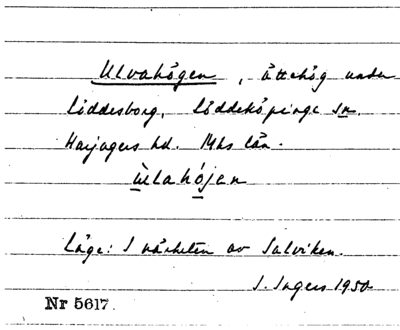 Ulvahögen, ättehög under
Löddesborg, Löddeköpinge sn.
Harjagers hd. Mhs län.
ùlahöjen
Läge: I närheten av Salviken.
S. Ingers 1950
Nr 5617.